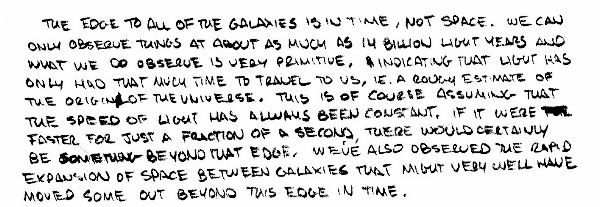 THE EDGE TO ALL OF THE GALAXIES IS IN TIME, NOT SPACE. WE CAN
ONLY OBSERVE THINGS AT ABOUT AS MUCH AS 14 BILLION LIGHT YEARS AND
WHAT WE DO OBSERVE IS VERY PRIMITIVE, INDICATING THAT LIGHT HAS
ONLY HAD THAT MUCH TIME TO TRAVEL TO US, IE. A ROUGH ESTIMATE OF
THE ORIGIN OF THE UNIVERSE. THIS IS OF COURSE ASSUMING THAT
THE SPEED OF LIGHT HAS ALWAYS BEEN CONSTANT. IF IT WERE
FASTER FOR JUST A FRACTION OF A SECOND, THERE WOULD CERTAINLY
BE SOMETHING BEYOND THAT EDGE. WE'VE ALSO OBSERVED THE RAPID
EXPANSION OF SPACE BETWEEN GALAXIES THAT MIGHT VERY WELL HAVE
MOVED SOME OUT BEYOND THIS EDGE IN TIME.